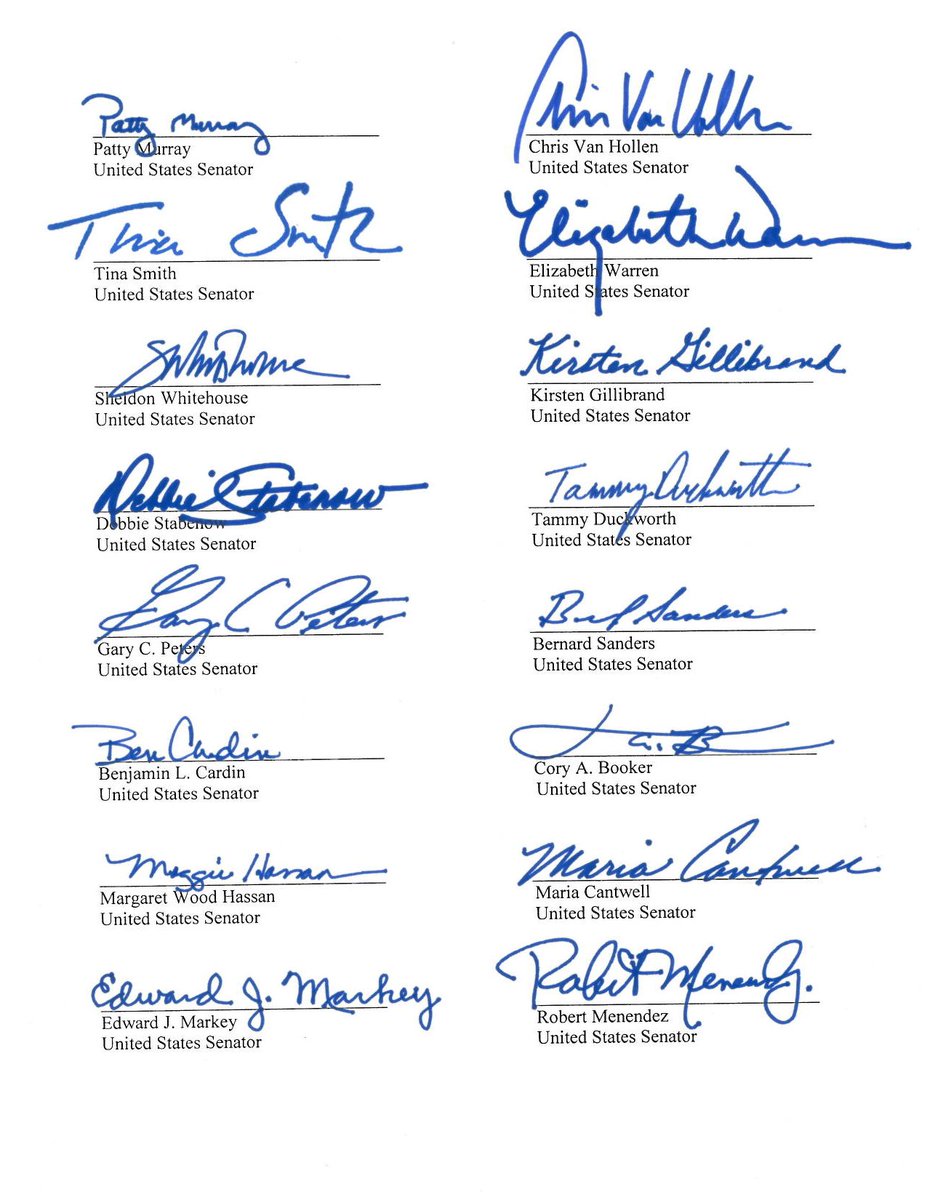 Patty Murray
Patty Murray
United States Senator
Chris Van Hollen
Chris Van Hollen
United States Senator
Tina Smith
Tina Smith
United States Senator
Elizabeth Warren
Elizabeth Warren
United States Senator
Sheldon Whitehouse
United States Senator
Kirsten Gillibrand
Kirsten Gillibrand
United States Senator
Debbie Stabenow
Debbie Stabenow
United States Senator
Tammy Duckworth
Tammy Duckworth
United States Senator
Gary C Peters
Gary C. Peters
United States Senator
Sanders
Bernard Sanders
United States Senator
Ben Cardin
Benjamin L. Cardin
United States Senator
Cory A. Booker
United States Senator
Maggie Hassan
Margaret Wood Hassan
United States Senator
Maria Cantwell
Maria Cantwell
United States Senator
Edward J. Markey
Edward J. Markey
United States Senator
Robert Menendez
Robert Menendez
United States Senator